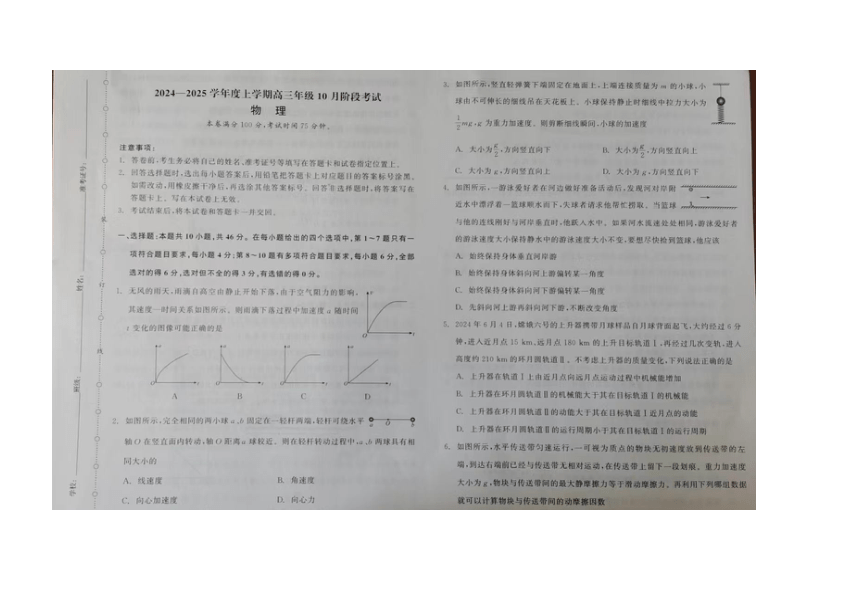 2024—2025 学年度上学期高三年级 10 月阶段考试
物 理
本卷满分 100 分,考试时间 75 分钟。
注意事项:
1. 答卷前,考生务必将自己的姓名、准考证号等填写在答题卡和试卷指定位置上。
2. 回答选择题时,选出每小题答案后,用铅笔把答题卡上对应题目的答案标号涂黑。
如需改动,用橡皮擦干净后,再选涂其他答案标号。回答非选择题时,将答案写在
答题卡上。写在本试卷上无效。
3. 考试结束后,将本试卷和答题卡一并交回。
一、选择题:本题共 10 小题,共 46 分。在每小题给出的四个选项中,第 1～7 题只有一
项符合题目要求,每小题 4 分;第 8～10 题有多项符合题目要求,每小题 6 分,全部
选对的得 6 分,选对但不全的得 3 分,有选错的得 0 分。
1. 无风的雨天,雨滴自高空由静止开始下落,由于空气阻力的影响,
其速度—时间关系如图所示。则雨滴下落过程中加速度 a 随时间
t 变化的图像可能正确的是
A B C D
2. 如图所示,完全相同的两小球 a、b 固定在一轻杆两端,轻杆可绕水平
轴 O 在竖直面内转动,轴 O 距离 a 球较近。则在轻杆转动过程中,a、b 两球具有相
同大小的
A. 线速度 B. 角速度
C. 向心加速度 D. 向心力
3. 如图所示,竖直轻弹簧下端固定在地面上,上端连接质量为 m 的小球,小
球由不可伸长的细线吊在天花板上。小球保持静止时细线中拉力大小为
1/2 mg,g 为重力加速度。则剪断细线瞬间,小球的加速度
A. 大小为 g/2,方向竖直向下 B. 大小为 g/2,方向竖直向上
C. 大小为 g,方向竖直向上 D. 大小为 g,方向竖直向下
4. 如图所示,一游泳爱好者在河边做好准备活动后,发现河对岸附
近水中漂浮着一篮球顺水而下,失球者请求他帮忙捞取。当篮球
与他的连线刚好与河岸垂直时,他跃入水中。如果河水流速处处相同,游泳爱好者
的游泳速度大小保持静水中的游泳速度大小不变,要想尽快捡到篮球,他应该
A. 始终保持身体垂直河岸游
B. 始终保持身体斜向河上游偏转某一角度
C. 始终保持身体斜向河下游偏转某一角度
D. 先斜向河上游再斜向河下游,不断改变角度
5. 2024 年 6 月 4 日,嫦娥六号的上升器携带月球样品自月球背面起飞,大约经过 6 分
钟,进入近月点 15 km、远月点 180 km 的上升目标轨道Ⅰ,再经过几次变轨,进入
高度约 210 km 的环月圆轨道Ⅱ。不考虑上升器的质量变化,下列说法正确的是
A. 上升器在轨道Ⅰ上由近月点向远月点运动过程中机械能增加
B. 上升器在环月圆轨道Ⅱ的机械能大于其在目标轨道Ⅰ的机械能
C. 上升器在环月圆轨道Ⅱ的动能大于其在目标轨道Ⅰ近月点的动能
D. 上升器在环月圆轨道Ⅱ的运行周期小于其在目标轨道Ⅰ的运行周期
6. 如图所示,水平传送带匀速运行,一可视为质点的物块无初速度放到传送带的左
端,到达右端前已经与传送带无相对运动,在传送带上留下一段划痕。重力加速度
大小为 g,物块与传送带间的最大静摩擦力等于滑动摩擦力。再利用下列哪组数据
就可以计算物块与传送带间的动摩擦因数
准考证号:
姓名:
班级:
学校:
装
订
线